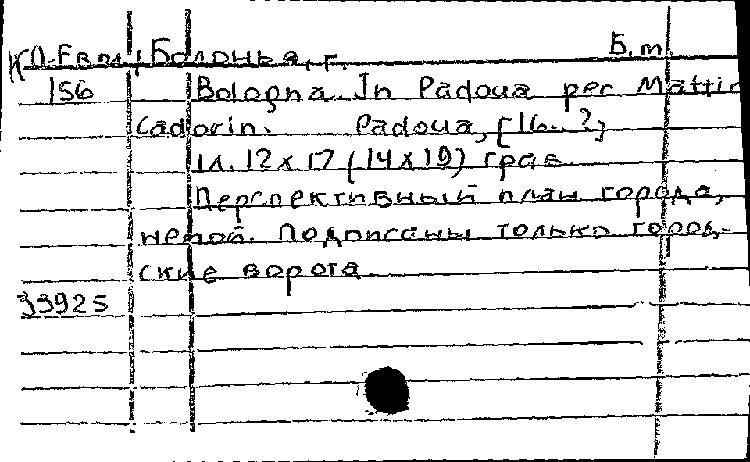 КО-Евр., Болонья, г. Б.м.
156 Bologna. In Padoua per Mattio
Cadorin. Padoua, [16..?]
1л. 12x17 (14x19) грав.
Перспективный план города,
немой. Подписаны только город-
ские ворота.
33925